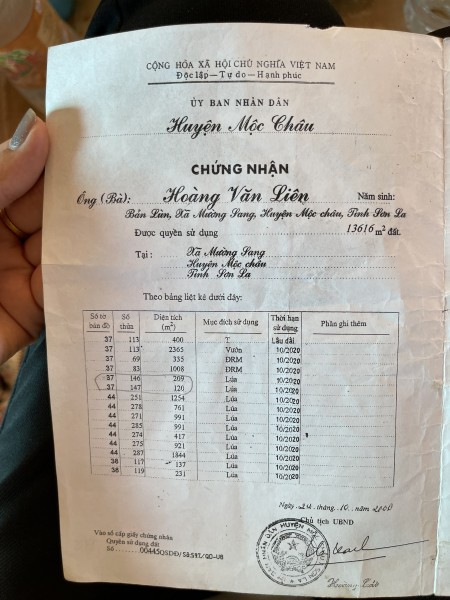 CỘNG HÒA XÃ HỘI CHỦ NGHĨA VIỆT NAM
Độc lập – Tự do – Hạnh phúc
ỦY BAN NHÂN DÂN
Huyện Mộc Châu
CHỨNG NHẬN
Ông (Bà): Hoàng Văn Liên Năm sinh:
Bản Lùn, Xã Mường Sang, Huyện Mộc châu, Tỉnh Sơn La
Được quyền sử dụng 13616 m² đất.
Tại: Xã Mường Sang
Huyện Mộc châu
Tỉnh Sơn La
Theo bảng liệt kê dưới đây:
Số tờ bản đồ Số thửa Diện tích (m²) Mục đích sử dụng Thời hạn sử dụng Phần ghi thêm
37 113 400 T Lâu dài
37 113 2365 Vườn 10/2020
37 69 335 ĐRM 10/2020
37 83 1008 ĐRM 10/2020
37 146 209 Lúa 10/2020
37 147 120 Lúa 10/2020
44 251 1254 Lúa 10/2020
44 278 761 Lúa 10/2020
44 271 991 Lúa 10/2020
44 285 991 Lúa 10/2020
44 274 417 Lúa 10/2020
44 275 921 Lúa 10/2020
44 287 1844 Lúa 10/2020
38 117 137 Lúa 10/2020
38 119 231 Lúa 10/2020
Ngày 24 tháng 10 năm 2000
Chủ tịch UBND
Vào sổ cấp giấy chứng nhận
Quyền sử dụng đất
Số 00445QSDĐ/